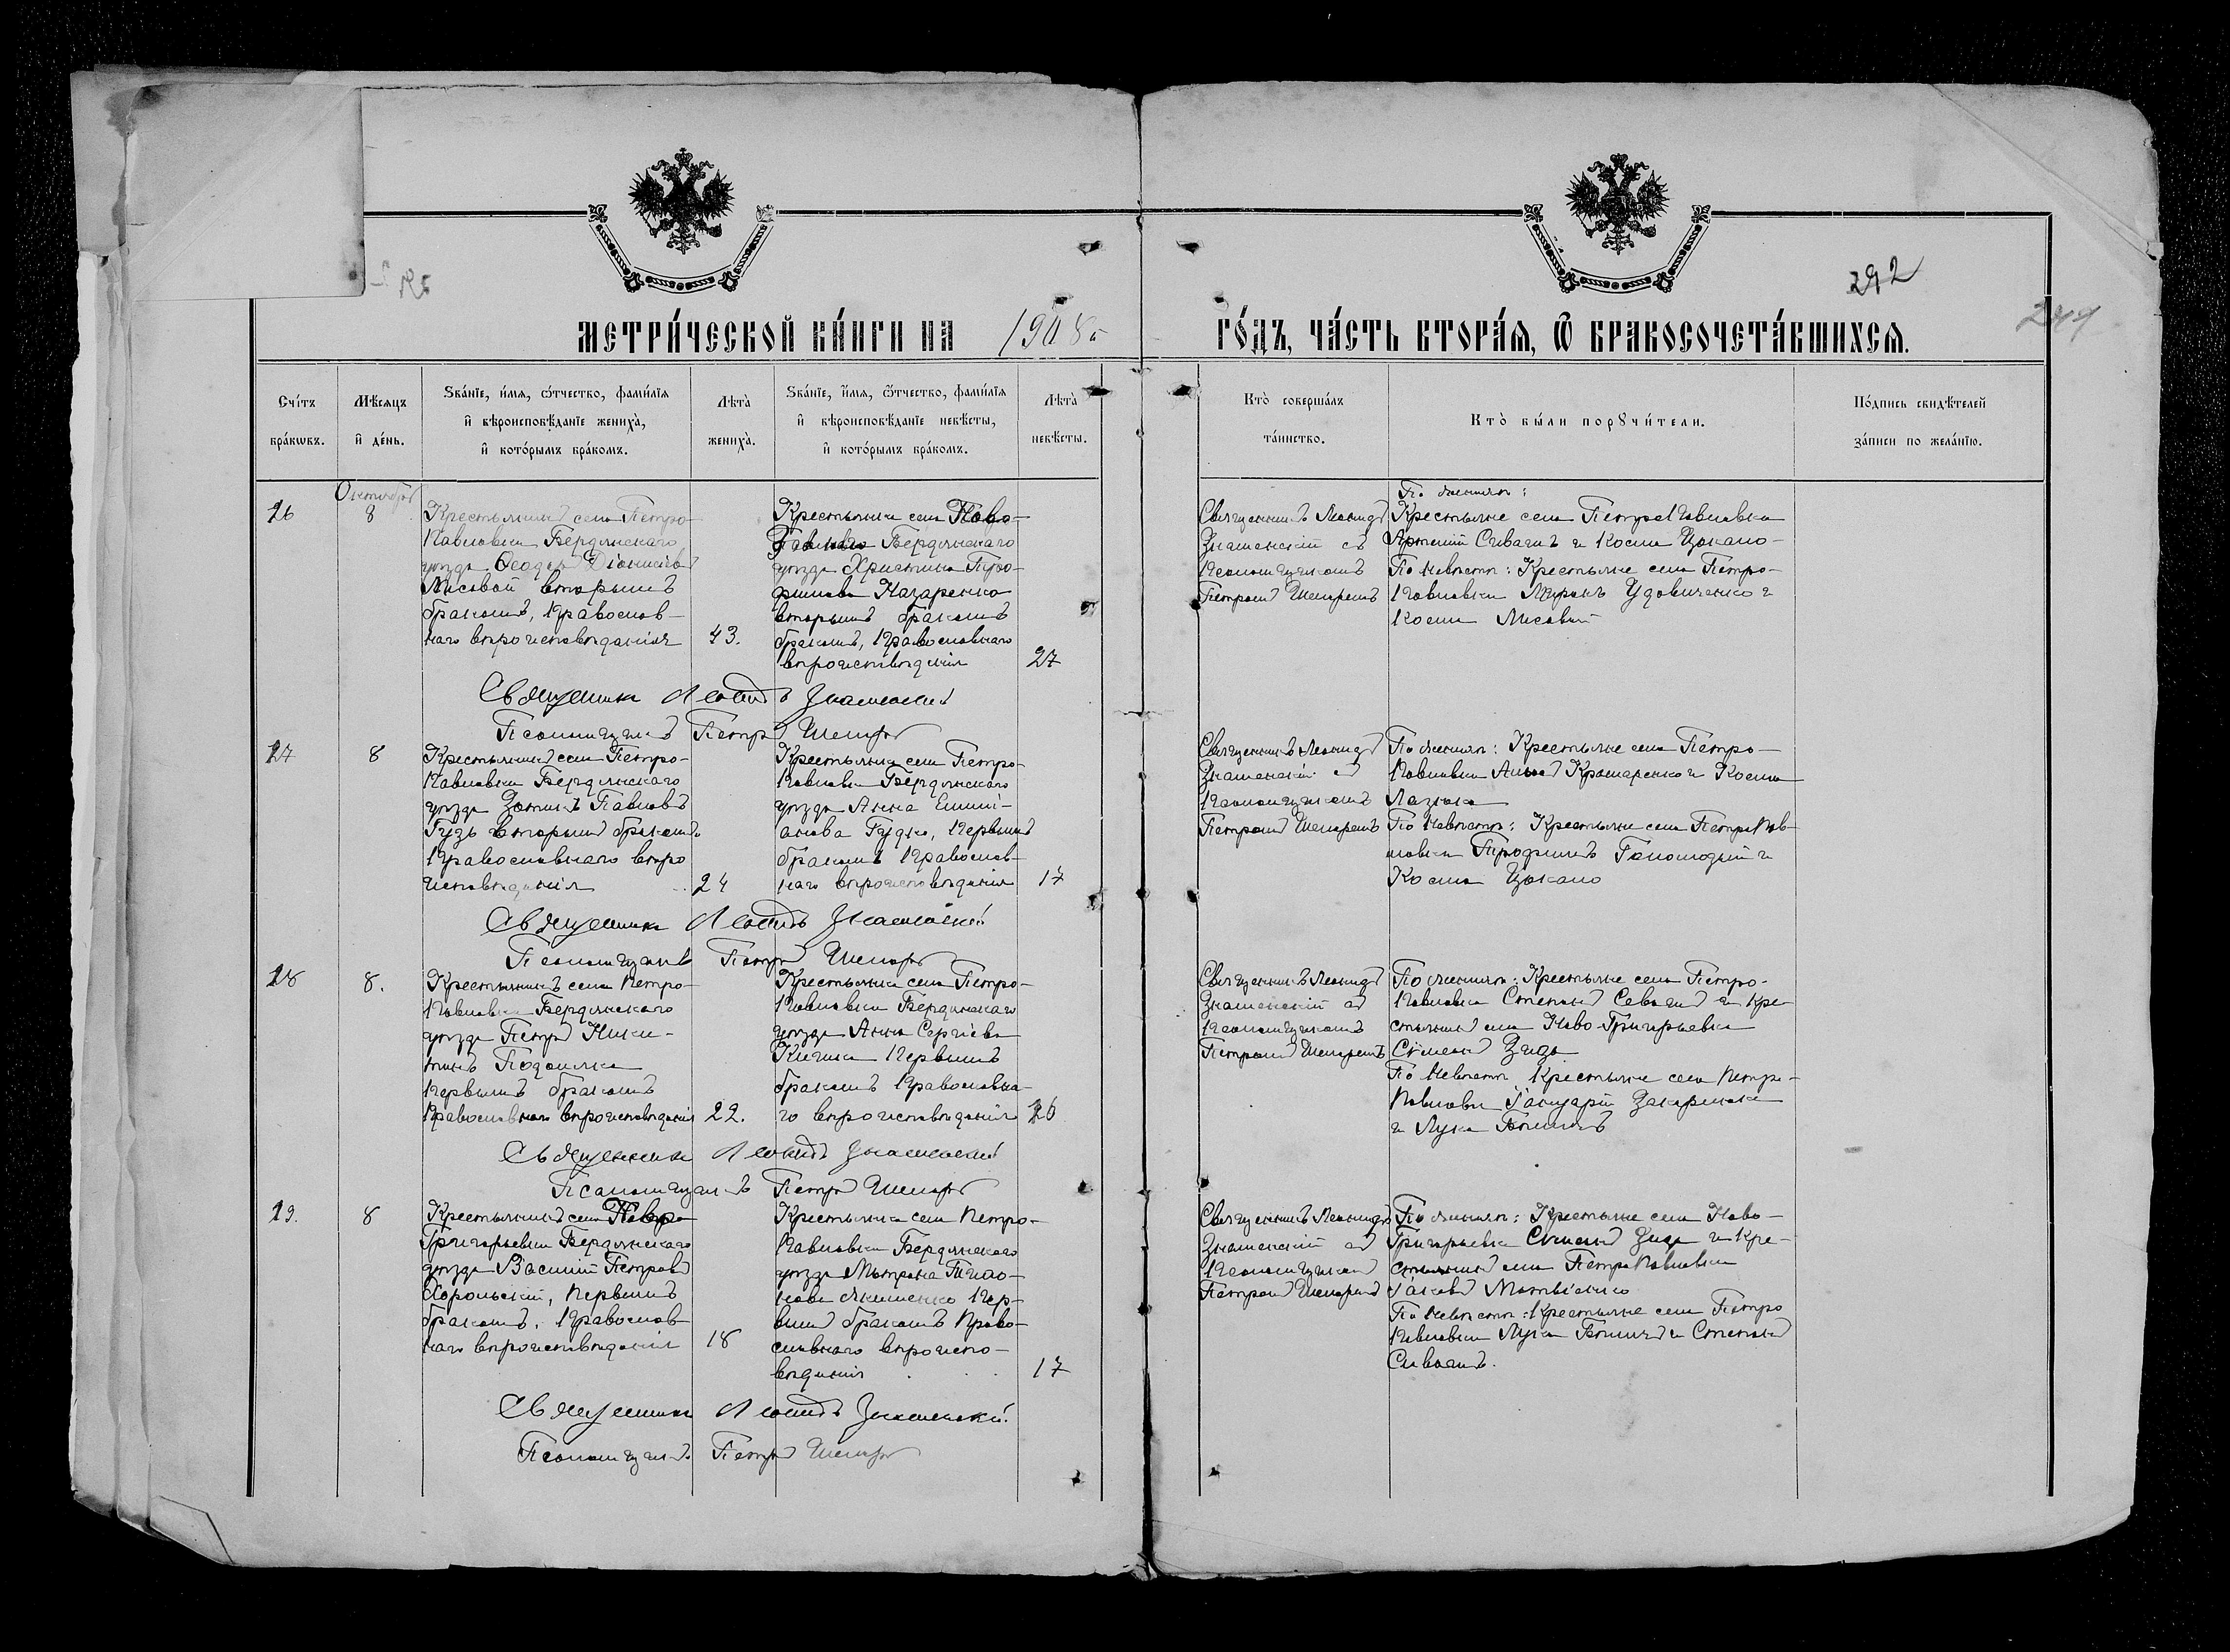 292
МЕТРИ́ЧЕСКОЙ КНИ́ГИ НА 1908 ГО́ДЪ, ЧА́СТЬ ВТОРА́Я, Ѿ БРАКОСОЧЕТА́ВШИХСЯ.
Сче́тъ бра́кωвъ.
Мѣ́сяцъ и де́нь.
Ѕва́нїе, и́мя, ѻ́тчество, фами́лїя и вѣроисповѣ́данїе жениха̀, и кото́рымъ бра́комъ.
Лѣта̀ жениха̀.
Ѕва́нїе, и́мя, ѻ́тчество, фами́лїя и вѣроисповѣ́данїе невѣ́сты, и кото́рымъ бра́комъ.
Лѣта̀ невѣ́сты.
Кто̀ соверша́лъ та́инство.
Кто̀ бы́ли порꙋчи́тели.
По́дпись свидѣ́телей за́писи по жела́нїю.
Октября
26
8
Крестьянинъ села Петро-
Павловки Бердянскаго
уѣзда Ѳеодоръ Діонисіевъ
Лисовой вторымъ
бракомъ, православ-
наго вѣроисповѣданія
43.
Крестьянка села Ново-
Бердянскаго
уѣзда Христина Тро-
фимова Назаренко
вторымъ бракомъ
бракомъ, православнаго
вѣроисповѣданія
27
Священникъ Леонидъ
Знаменскій съ
псаломщикомъ
Петромъ
По женихѣ:
Крестьяне села Петропавловки
Сивашъ и Косма Цокало-
По невѣстѣ: Крестьяне села Петро-
павловки Миронъ Удовиченко и
Косма Лисовый
Священникъ Леонидъ Знаменскій
Псаломщикъ Петръ
27
8
Крестьянинъ села Петро-
Павловки Бердянскаго
уѣзда Павловъ
Гузь вторымъ бракомъ
православнаго вѣро
исповѣданія
24
Крестьянка села Петро-
павловки Бердянскаго
уѣзда Анна Емилі-
анова Гудко, первымъ
бракомъ православ-
наго вѣроисповѣданія
17
Священникъ Леонидъ
Знаменскій съ
псаломщикомъ
Петромъ
По женихѣ: Крестьяне села Петро-
павловки Крамаренко и Косма
Лазька
По невѣстѣ: Крестьяне села Петропав-
ловки Трофимъ и
Косма Цокало
Священникъ Леонидъ Знаменскій
Псаломщикъ Петръ
28
8.
Крестьянинъ села Петро-
павловки Бердянскаго
уѣзда Петръ Ники-
тинъ Подолька
первымъ бракомъ
православнаго вѣроисповѣданія
22.
Крестьянка села Петро-
павловки Бердянскаго
уѣзда Анна Сергіева
первымъ
бракомъ православна-
го вѣроисповѣданія
Священникъ Леонидъ
Знаменскій съ
псаломщикомъ
Петромъ
По женихѣ: Крестьяне села Петро-
павловки Степанъ Сивашъ и кре-
стьянинъ села Ново-Григорьевки
Симеонъ
По невѣстѣ Крестьяне села Петро-
павловки
и Лука
Священникъ Леонидъ Знаменскій
Псаломщикъ Петръ
29.
8
Крестьянинъ села Ново-
Григорьевки Бердянскаго
уѣзда Василій Петровъ
Хорольскій, первымъ
бракомъ, православ-
наго вѣроисповѣданія
18
Крестьянка села Петро-
павловки Бердянскаго
уѣзда Матрона Тихо-
нова Якименко пер-
вымъ бракомъ право-
славнаго вѣроиспо-
вѣданія
17
Священникъ Леонидъ
Знаменскій съ
псаломщикомъ
Петромъ
По женихѣ: Крестьяне села Ново-
Григорьевки Симеонъ и кре-
стьянинъ села Петропавловки
Іаковъ Матвіенко
По невѣстѣ: Крестьяне села Петро
павловки Лука и Степанъ
Сивашъ.
Священникъ Леонидъ Знаменскій
Псаломщикъ Петръ